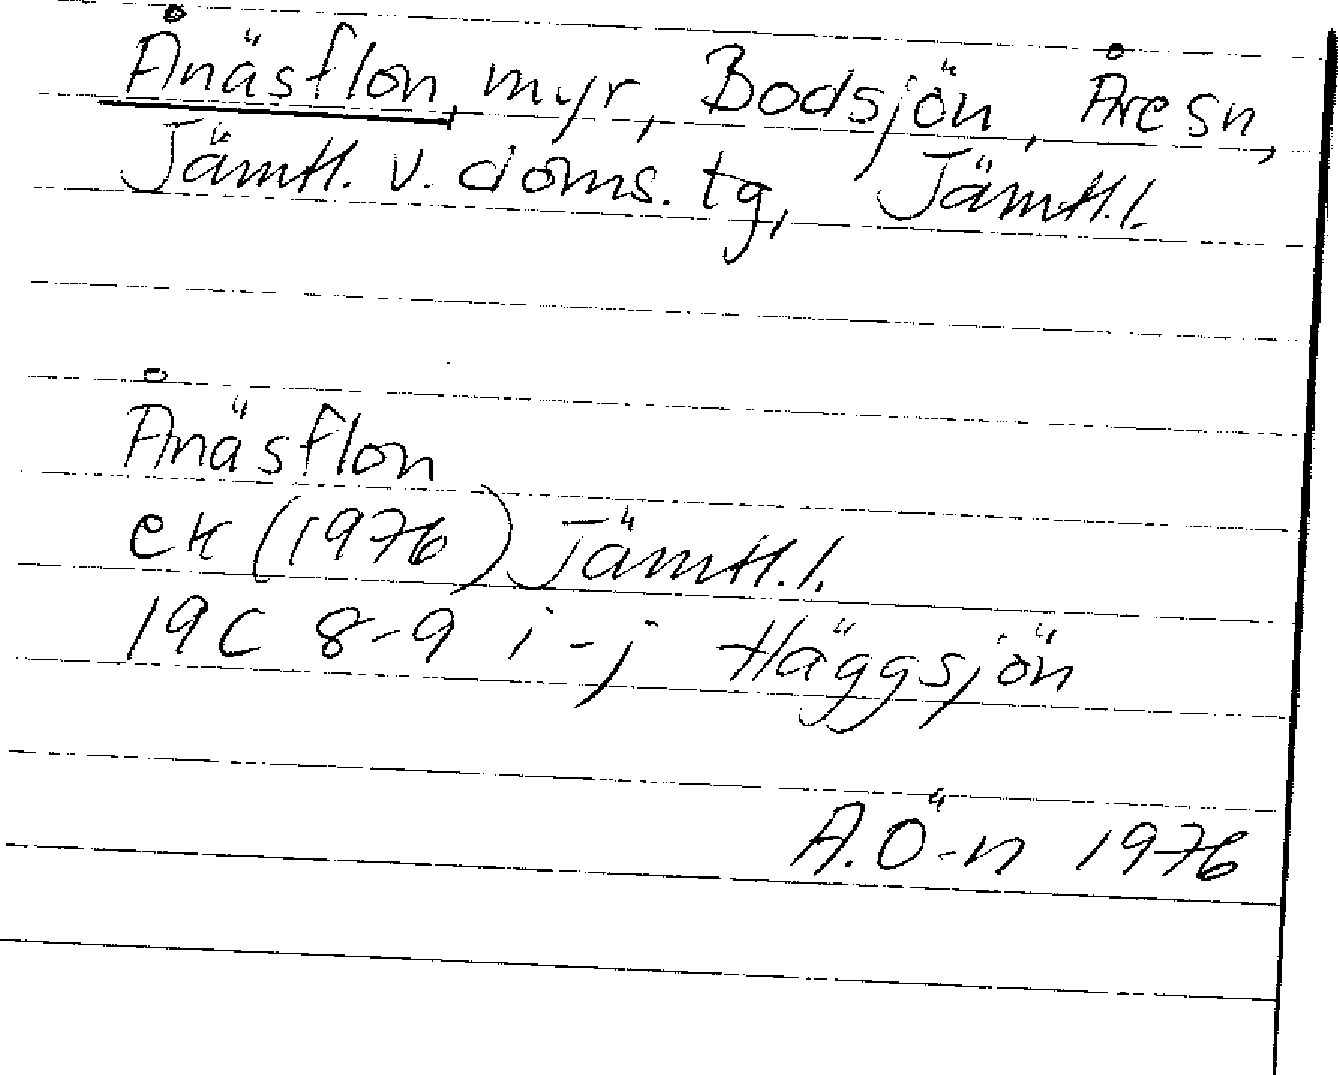 Ånäsflon, myr, Bodsjön, Åre sn,
Jämtl. v. doms. tg, Jämtl. l.
Ånäsflon
ek (1976) Jämtl. l.
19C 8-9 i-j Häggsjön
A. Ö-n 1976